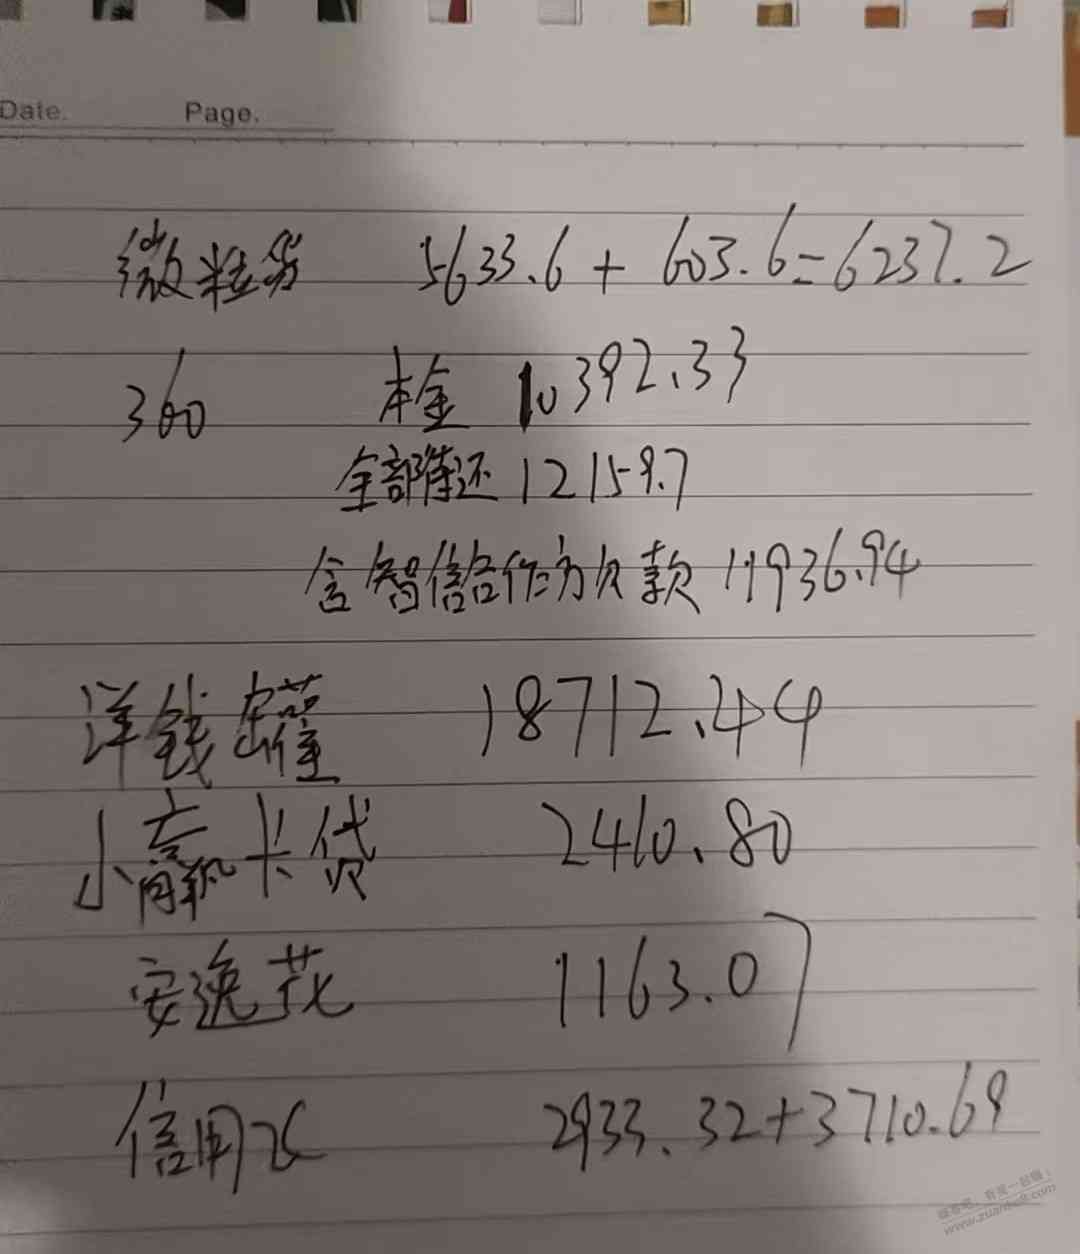 Date. Page.
微粒贷 5633.6 + 603.6=6237.2
360 本金 10392.33
全部待还 12159.7
含智信合作方欠款 11936.94
洋钱罐 18712.44
小赢卡贷 2410.80
安逸花 1163.07
信用飞 2933.32+3710.69
www.zuanke8.com